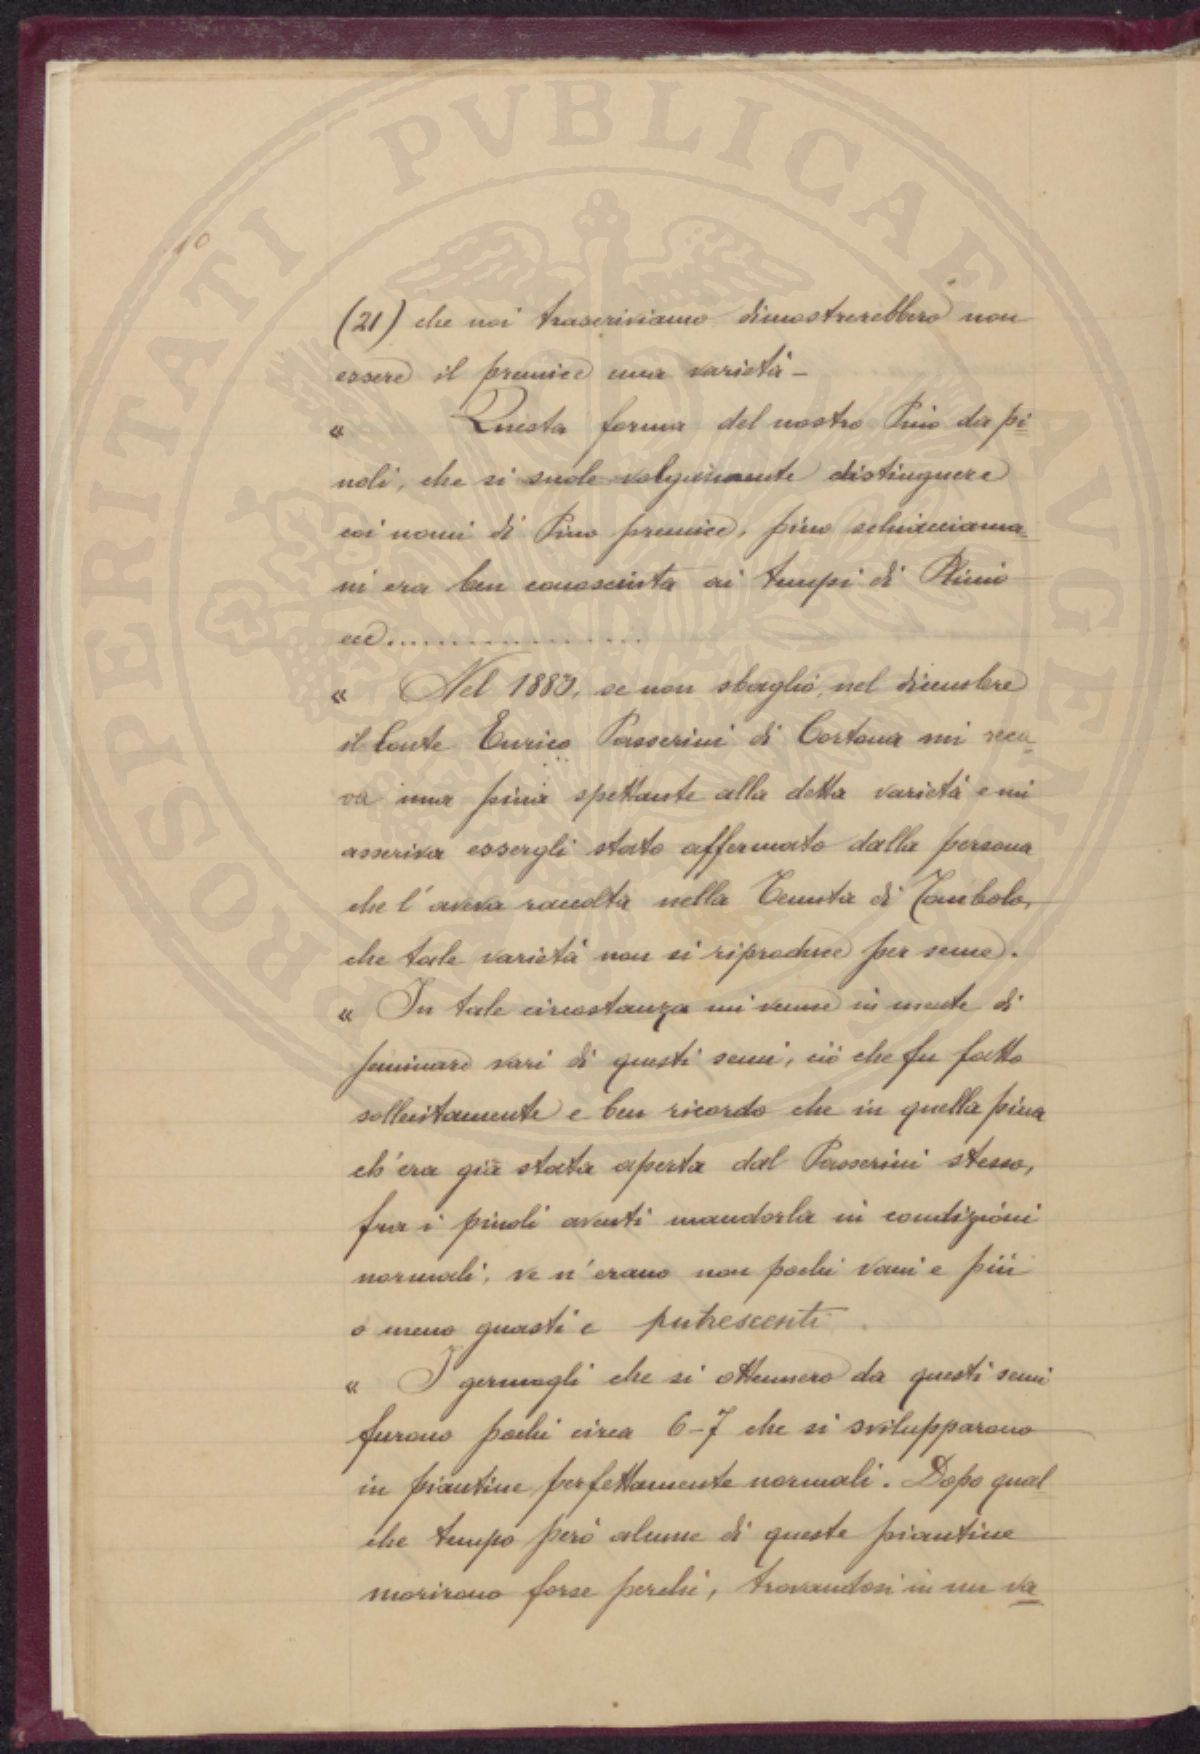 10
(21) che noi trascriviamo dimostrerebbero non
essere il premice una varietà –
« Questa forma del nostro Pino da pi
noli, che si suole volgarmente distinguere
coi nomi di Pino premice, pino schiacciama
ni era ben conosciuta ai tempi di Plinio
ecc................
« Nel 1883, se non sbaglio, nel dicembre
il Conte Enrico Passerini di Cortona mi reca
va una pina spettante alla detta varietà e mi
asseriva essergli stato affermato dalla persona
che l'aveva raccolta nella Tenuta di Tombolo,
che tale varietà non si riproduce per seme.
« In tale circostanza mi venne in mente di
seminare vari di questi semi, ciò che fu fatto
sollecitamente e ben ricordo che in quella pina
ch'era già stata aperta dal Passerini stesso,
fra i pinoli aventi mandorla in condizioni
normali, ve n'erano non pochi vani e più
o meno guasti e putrescenti.
« I germogli che si ottennero da questi semi
furono pochi circa 6-7 che si svilupparono
in piantine perfettamente normali. Dopo qual
che tempo però alcune di queste piantine
morirono forse perchè, trovandosi in un va
PROSPERITATI PVBLICAE AVGEN